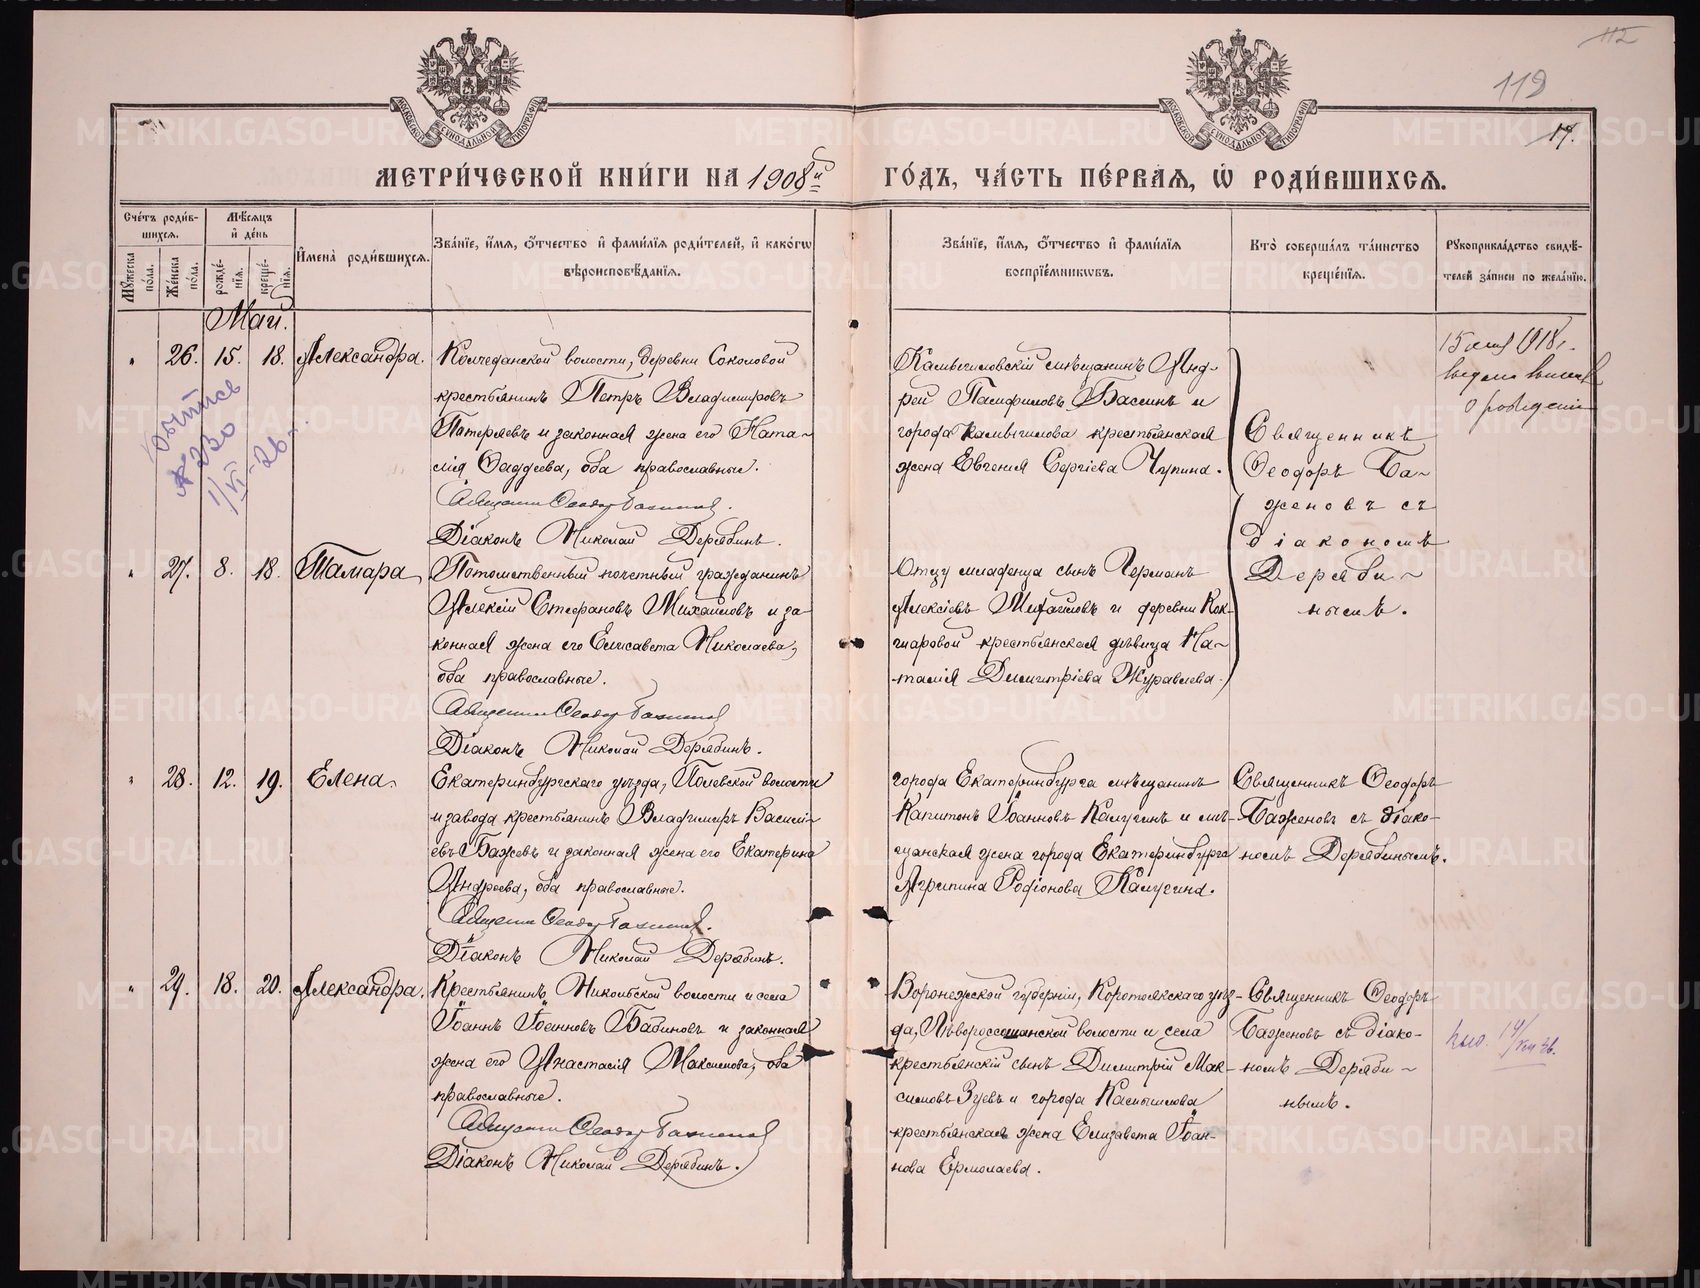 112
119
17.
МОСКОВСКОЙ СѴНОДАЛЬНОЙ ТИПОГРАФІИ
МОСКОВСКОЙ СѴНОДАЛЬНОЙ ТИПОГРАФІИ
МЕТРИ́ЧЕСКОЙ КНИ́ГИ НА 1908й
ГО́ДЪ, ЧА́СТЬ ПЕ́РВАЯ, Ѿ РОДИ́ВШИХСЯ.
Сче́тъ роди́в-
шихся.
Мѣ́сяцъ
и҆ де́нь
Мꙋ́жеска по́ла.
Же́нска по́ла.
рожде́-
нїя.
креще́-
нїя.
И҆мена̀ роди́вшихся.
Зва́нїе, и҆́мя, ѻ҆́тчество и҆ фами́лїя роди́телей, и҆ како́гѡ
вѣроисповѣ́данїя.
Зва́нїе, и҆́мя, ѻ҆́тчество и҆ фами́лїя
воспрїе́мникѡвъ.
Кто̀ соверша́лъ та́инство
креще́нїя.
Рꙋкоприкла́дство свидѣ́-
телей за́писи по жела́нїю.
Май.
" 26. 15. 18. Александра.
Колчеданской волости, деревни Соколовой
крестьянинъ Петръ Владимировъ
Потеряевъ и законная жена его Ната-
лія Фаддеева, оба православные.
Священникъ Ѳеодоръ Баженовъ.
Діаконъ Николай Дерябинъ.
Камышловскій мѣщанинъ Анд-
рей Памфиловъ Бассинъ и
города Камышлова крестьянская
жена Евгенія Сергіева Чупина.
Священникъ
Ѳеодоръ Ба-
женовъ съ
діакономъ
Деряби-
нымъ.
1918 г.
о рожденіи
№ 230
1/VI-26 г.
" 27. 8. 18. Тамара
Потомственный почетный гражданинъ
Алексій Стефановъ Михайловъ и за-
конная жена его Елисавета Николаева,
оба православные.
Священникъ Ѳеодоръ Баженовъ
Діаконъ Николай Дерябинъ.
Отцу младенца сынъ Германъ
Алексіевъ Михайловъ и деревни Кок-
шаровой крестьянская дѣвица На-
талія Димитріева Журавлева.
" 28. 12. 19. Елена.
Екатеринбургскаго уѣзда, Полевской волости
и завода крестьянинъ Владимиръ Василі-
евъ Бажовъ и законная жена его Екатерина
Андреева, оба православные.
Священникъ Ѳеодоръ Баженовъ.
Діаконъ Николай Дерябинъ.
города Екатеринбурга мѣщанинъ
Капитонъ Іоанновъ Калугинъ и мѣ-
щанская жена города Екатеринбурга
Агрипина Родіонова Калугина.
Священникъ Ѳеодоръ
Баженовъ съ діако-
номъ Дерябинымъ.
" 29. 18. 20. Александра.
Крестьянинъ Никольской волости и села
Іоаннъ Іоанновъ Бабиновъ и законная
жена его Анастасія Максимова, оба
православные.
Священникъ Ѳеодоръ Баженовъ
Діаконъ Николай Дерябинъ.
Воронежской губерніи, Коротоякскаго уѣз-
да, Лѣвороссошанской волости и села
крестьянскій сынъ Димитрій Мак-
симовъ Зуевъ и города Камышлова
крестьянская жена Елизавета Іоан-
нова Ермолаева.
Священникъ Ѳеодоръ
Баженовъ съ діако-
номъ Деряби-
нымъ.
METRIKI.GASO-URAL.RU